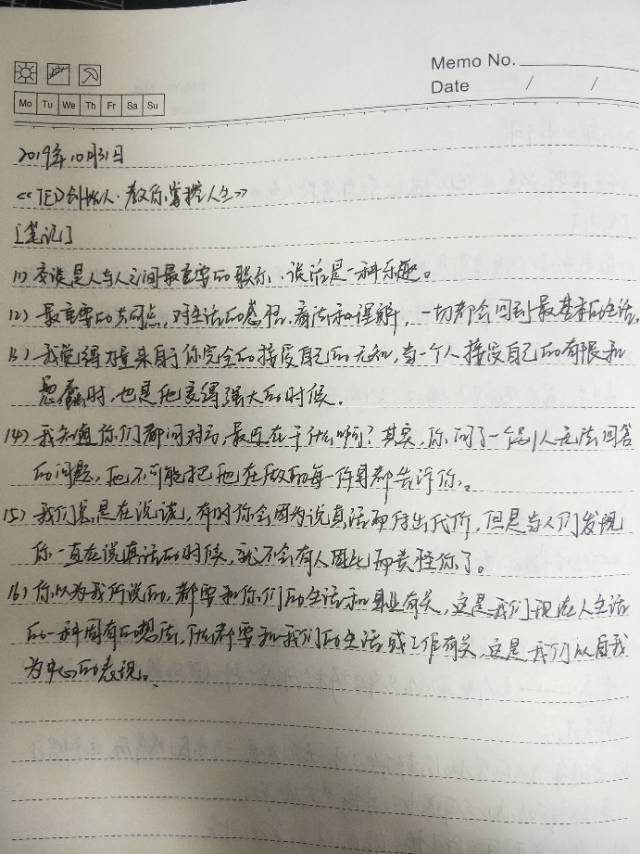 Memo No.
Date / /
Mo Tu We Th Fr Sa Su
2019年10月31日
《TED创始人·教你掌控人生》
[笔记]
(1) 是人与人之间最重要的联系,说话是一种乐趣。
(2) 最重要的共同点,对生活的感悟、看法和理解,一切都会回到最基本的生活。
(3) 我觉得力量来自于你完全的接受自己的无知,当一个人接受自己的有限和
愚蠢时,也是他变得强大的时候。
(4) 我知道你们都问对方,最近在干什么啊?其实,你问了一个别人无法回答
的问题,他不可能把他在做的每一件事都告诉你。
(5) 我们总是在说谎,有时你会因为说真话而付出代价,但是当人们发现
你一直在说真话的时候,就不会有人因此而责怪你了。
(6) 你以为我所说的,都要和你们的生活和事业有关,这是我们现代人生活
的一种固有的想法,什么都要和我们的生活或工作有关,这是我们以自我
为中心的表现。